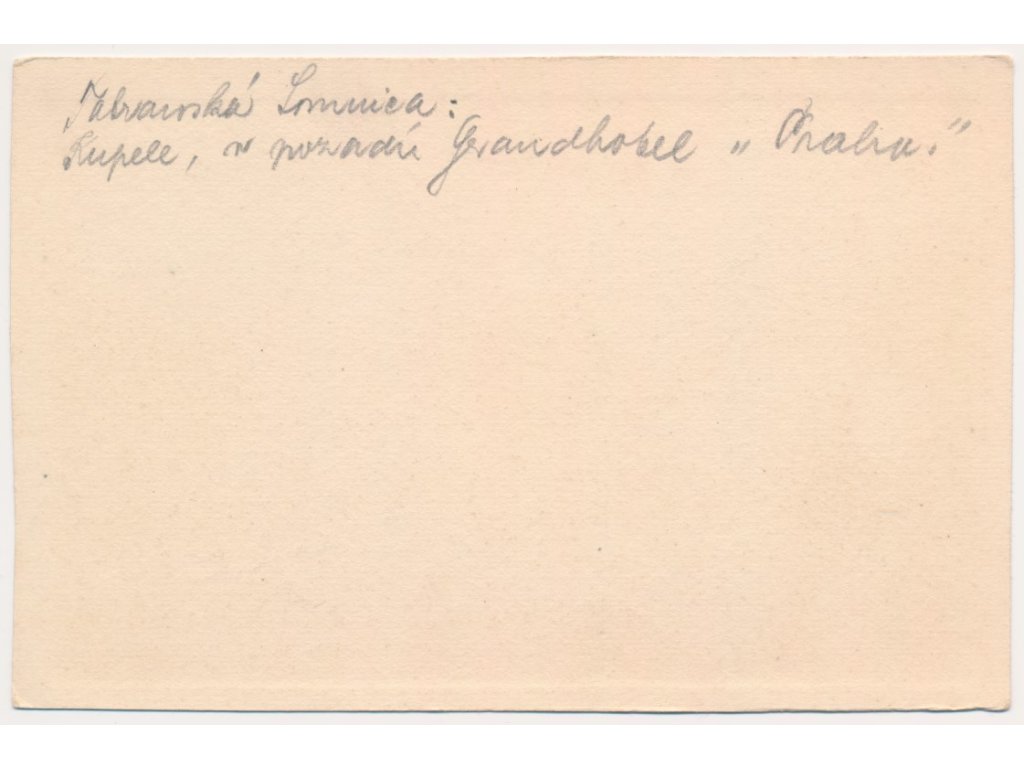 Tatranská Lomnica:
Kupele, v pozadí Grandhotel „Praha.“